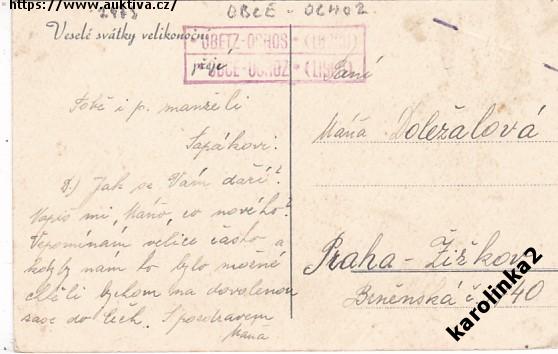 https://www.auktiva.cz
OBCE - OCHOZ
Veselé svátky velikonoční
OBETZ-OCHOS
přeje
OBCE-OCHOZ
Paní
Tobě i p. manželi
Ťapákovi.
Máňa Doležalová
D.) Jak se Vám daří?
Napiš mi, Máňo, co nového?
Vzpomínám velice často, a
kdyby nám to bylo možné
chtěli bychom na dovolenou
zase do Čech. S pozdravem
Máňa
Praha - Žižkov
Brněnská č. 40
karolinka2